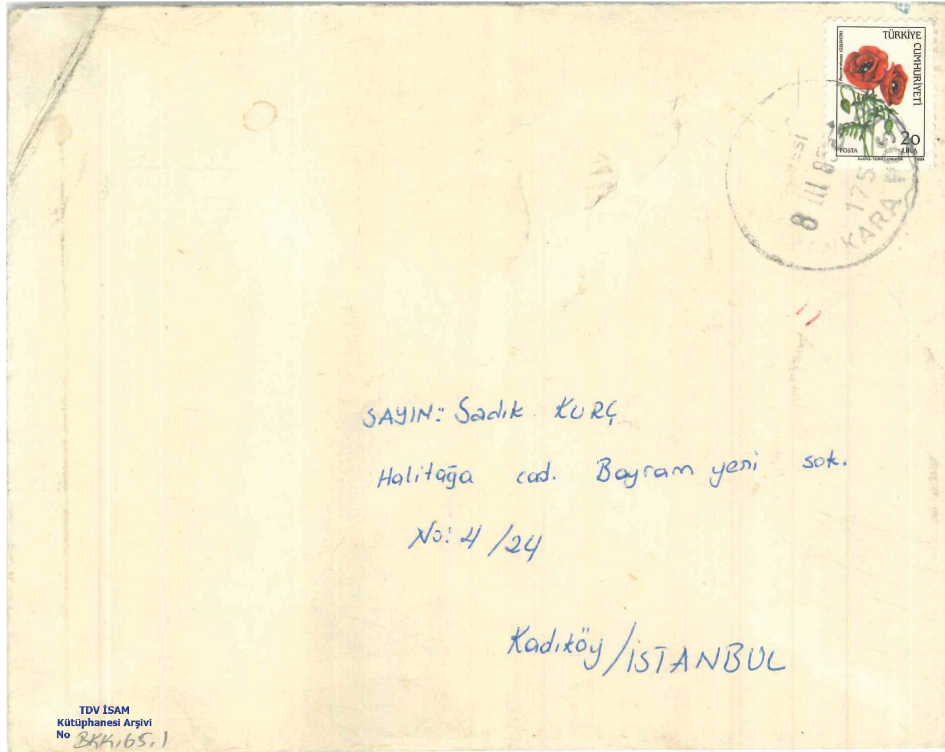 TÜRKİYE CUMHURİYETİ
20
LİRA
POSTA
8 III 85
175
KARA
SAYIN: Sadık KURÇ
Halitağa cad. Bayram yeri sok.
No: 4/24
Kadıköy/İSTANBUL
TDV İSAM
Kütüphanesi Arşivi
No BKK.65.1